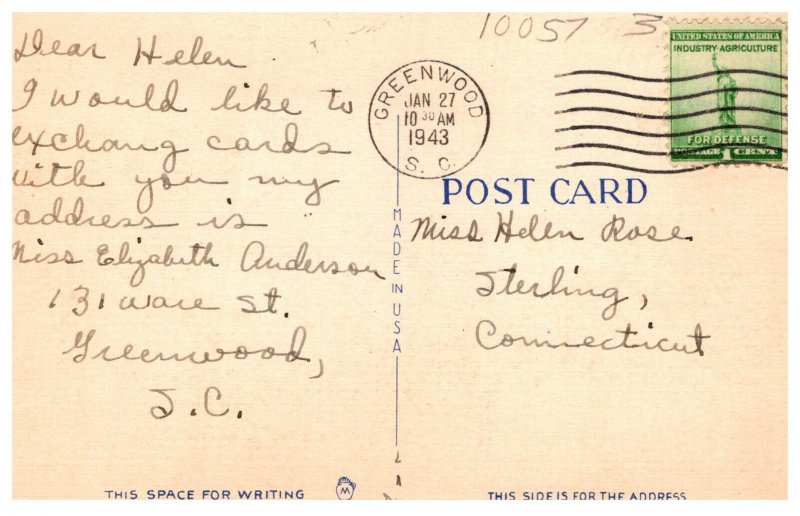 10057 3
UNITED STATES OF AMERICA
INDUSTRY-AGRICULTURE
FOR DEFENSE
1
GREENWOOD
JAN 27
10 30 AM
1943
S. C.
Dear Helen
I would like to
exchang cards
with you my
address is
Miss Elizabeth Anderson
131 Ware St.
Greenwood,
S.C.
MADE IN USA
POST CARD
Miss Helen Rose
Sterling,
Connecticut
THIS SPACE FOR WRITING
M
THIS SIDE IS FOR THE ADDRESS